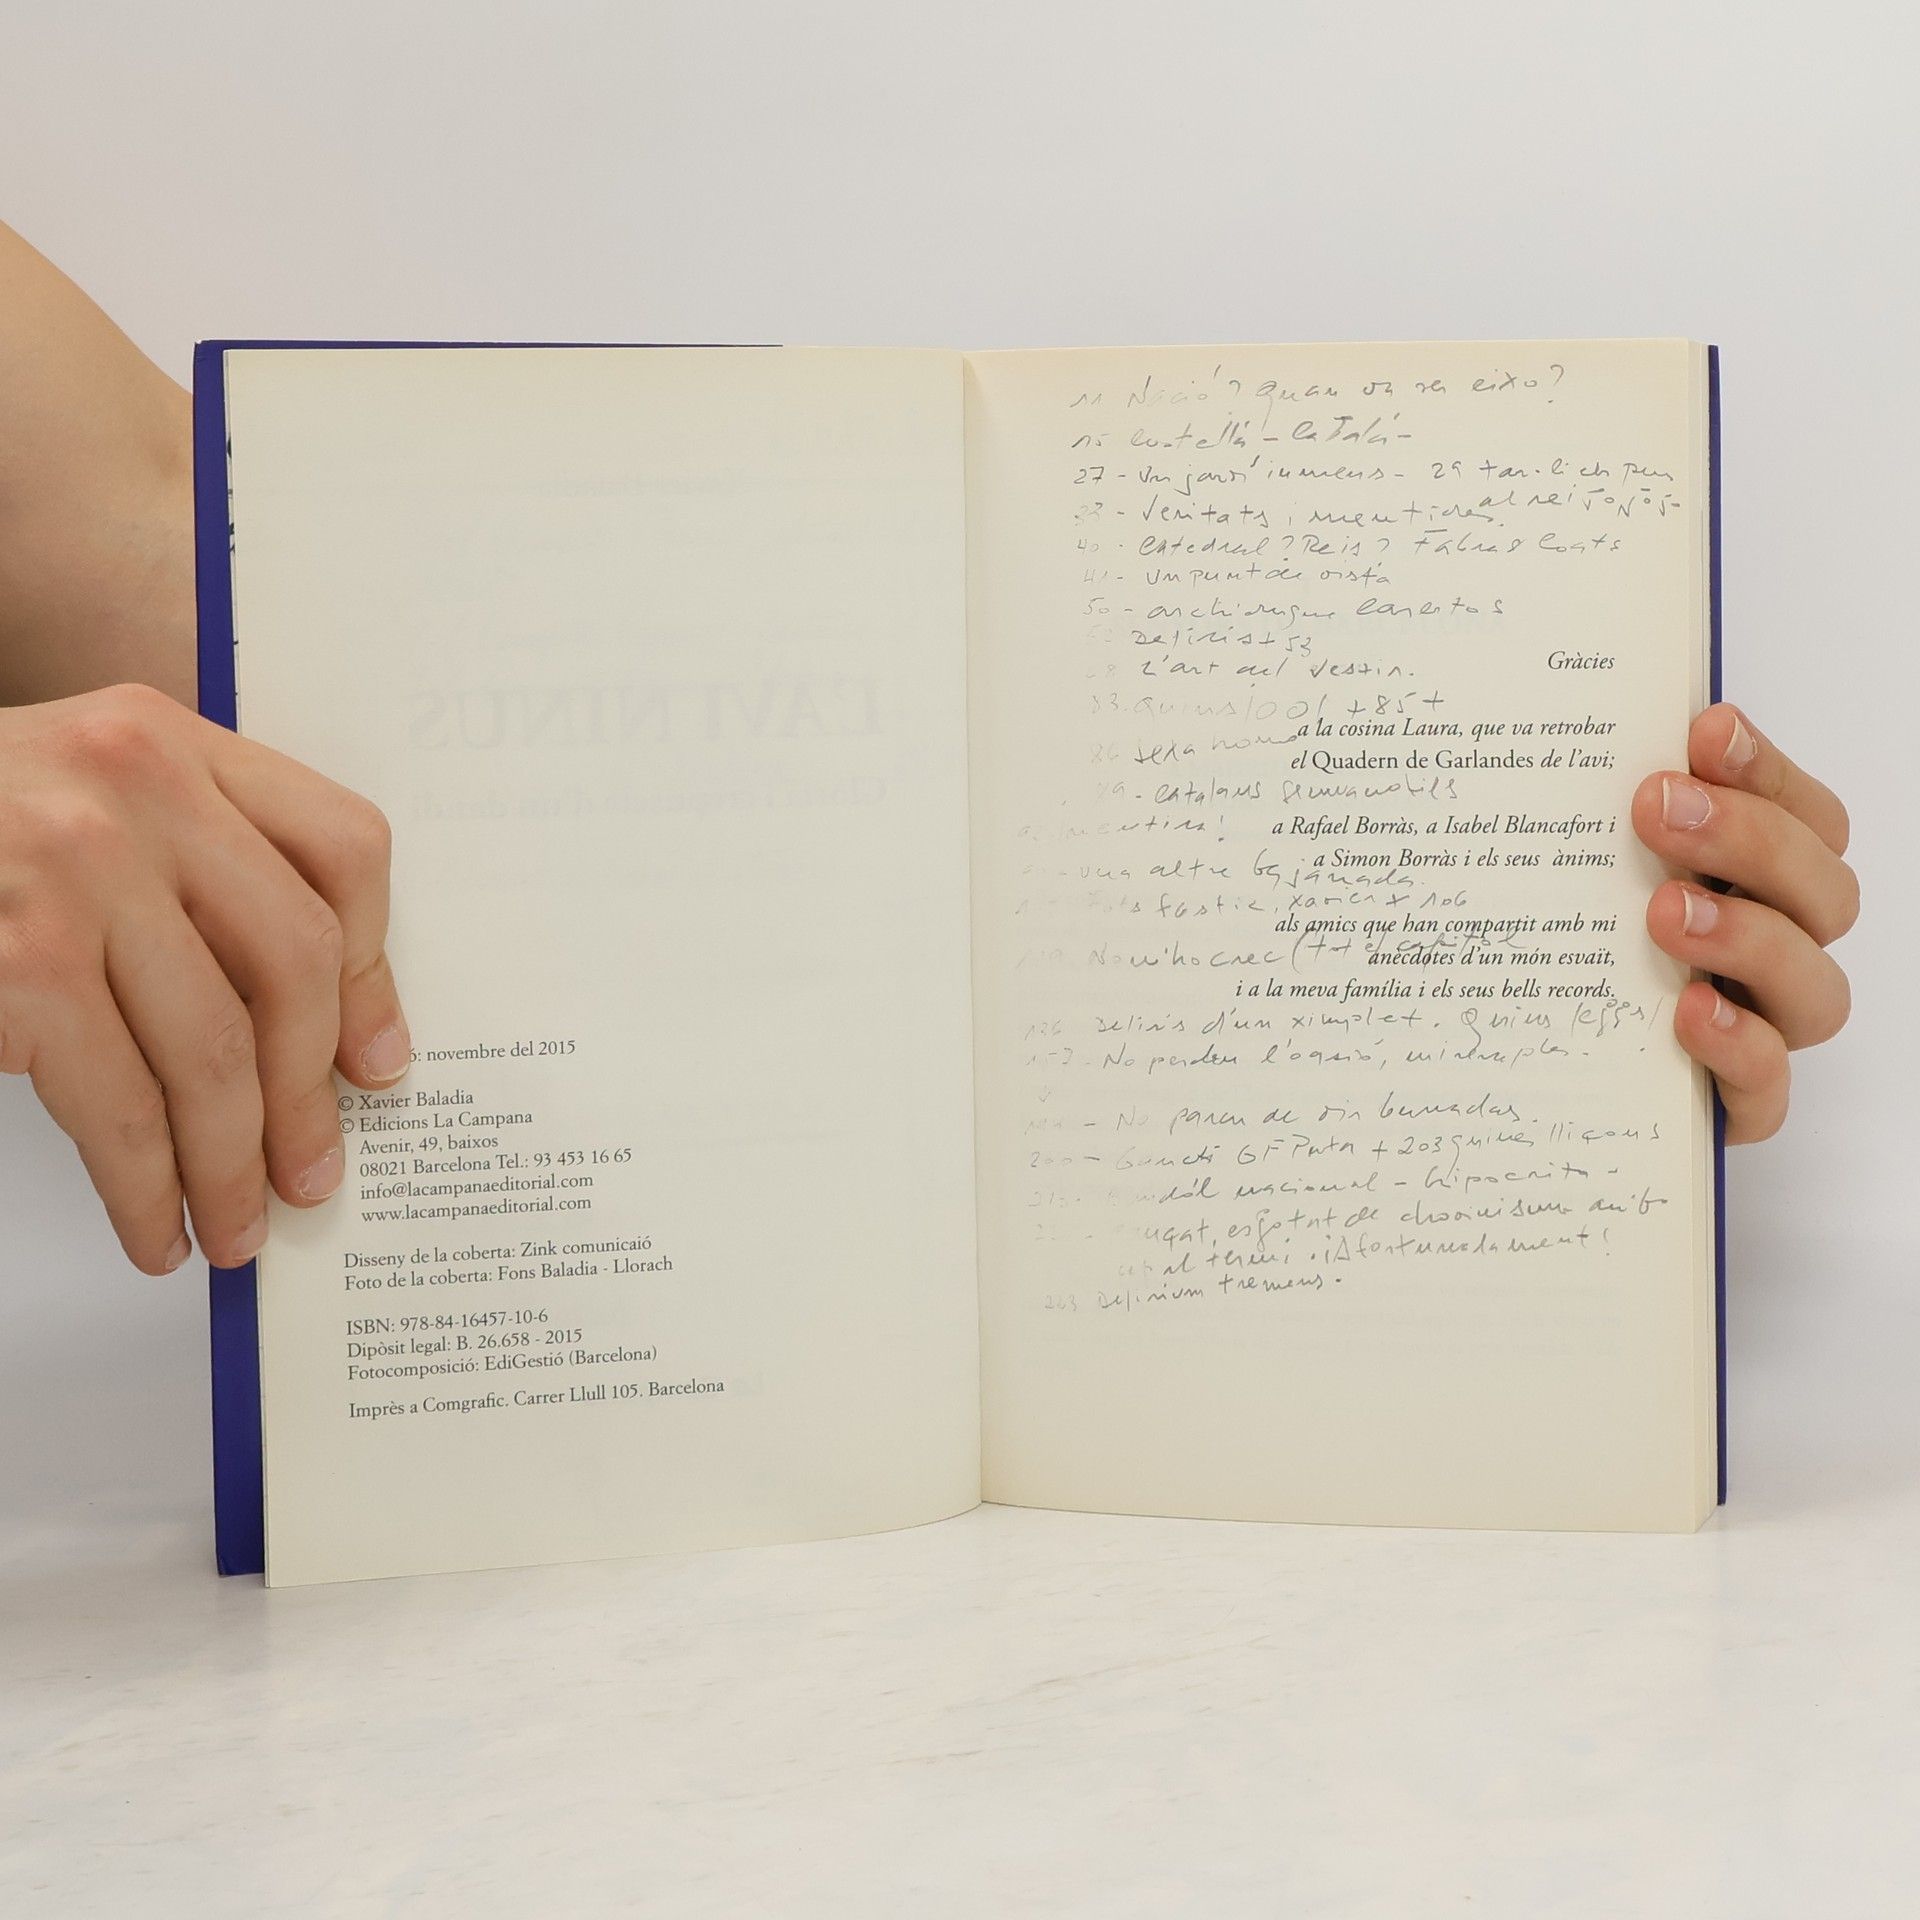 ó: novembre del 2015
© Xavier Baladia
© Edicions La Campana
Avenir, 49, baixos
08021 Barcelona Tel.: 93 453 16 65
info@lacampanaeditorial.com
www.lacampanaeditorial.com
Disseny de la coberta: Zink comunicaió
Foto de la coberta: Fons Baladia - Llorach
ISBN: 978-84-16457-10-6
Dipòsit legal: B. 26.658 - 2015
Fotocomposició: EdiGestió (Barcelona)
Imprès a Comgrafic. Carrer Llull 105. Barcelona
11 Nació? Quan va ser eixo?
15 Castellà - Català -
27 - Un jardí immens - 29 tan-li els peus
al rei
33 - Veritats i mentides.
40 - Catedral? Reis? Fabra & Coats
41 - Un punt de vista
50 - archiduque Carlitos
Deliris + 53
L'art del vestir.
Gràcies
83. Quins + 85 +
a la cosina Laura, que va retrobar
el Quadern de Garlandes de l'avi;
89 - Catalans
mentira!
a Rafael Borràs, a Isabel Blancafort i
a Simon Borràs i els seus ànims;
una altre bajanada.
fàstic, Xavier + 106
als amics que han compartit amb mi
No m'ho crec (tot el capítol
anècdotes d'un món esvaït,
i a la meva família i els seus bells records.
126 Deliris d'un ximplet. Quins
157 - No perden l'ocasió, miserables.
- No paren de dir burrades.
200 - + 203 quines lliçons
nacional - hipòcrita -
esgotat de chovinisme amb
al termi. ¡Afortunadament!
223 Delirium tremens.